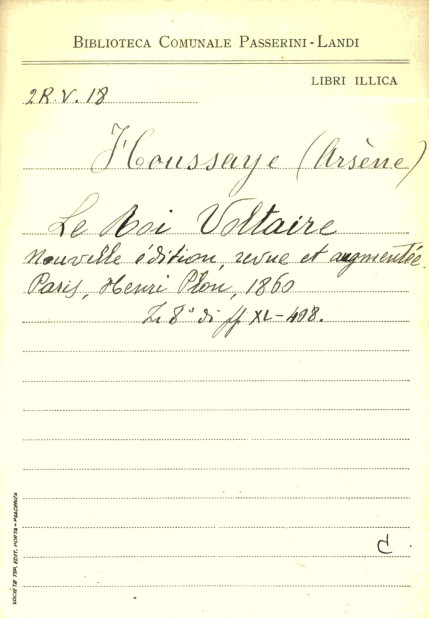 BIBLIOTECA COMUNALE PASSERINI-LANDI
LIBRI ILLICA
2R.V.18
Houssaye (Arsène)
Le Roi Voltaire
Nouvelle édition, revue et augmentée.
Paris, Henri Plon, 1860
In 8° di ff XL-408.
C
SOCIETÀ TIP. EDIT. PORTA - PIACENZA